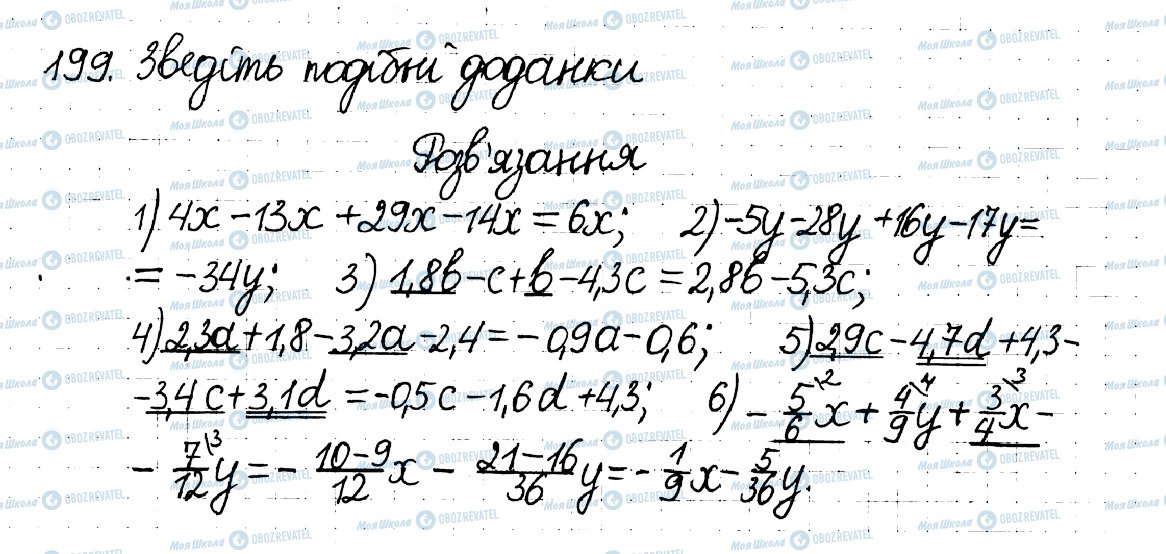 199. Зведіть подібні доданки
Розв'язання
1) 4x – 13x + 29x – 14x = 6x; 2) –5y – 28y + 16y – 17y =
= –34y; 3) 1,8b – c + b – 4,3c = 2,8b – 5,3c;
4) 2,3a + 1,8 – 3,2a – 2,4 = –0,9a – 0,6; 5) 2,9c – 4,7d + 4,3 –
– 3,4c + 3,1d = –0,5c – 1,6d + 4,3; 6) – 5/6\2 x + 4/9\4 y + 3/4\3 x –
– 7/12\3 y = – (10–9)/12 x – (21–16)/36 y = – 1/9 x – 5/36 y.
МояШкола OBOZREVATEL